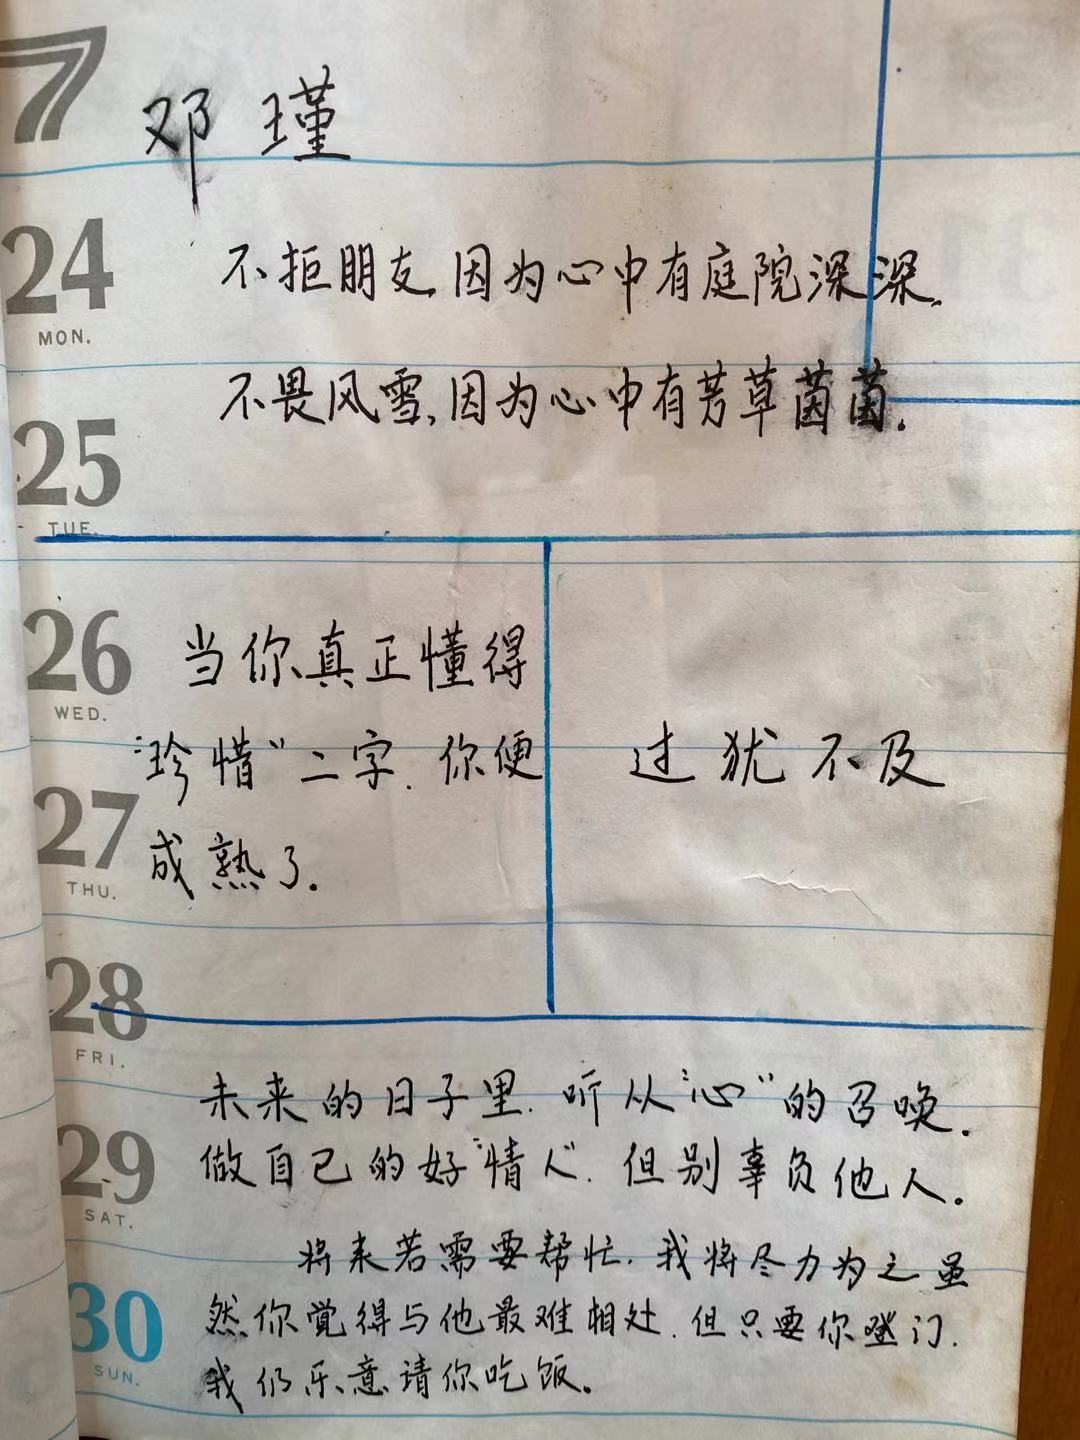 7
邓瑾
24
MON.
不拒朋友,因为心中有庭院深深.
不畏风雪,因为心中有芳草茵茵.
25
TUE.
26
WED.
当你真正懂得
"珍惜"二字.你便
成熟了.
27
THU.
过犹不及
28
FRI.
未来的日子里.听从"心"的召唤.
29
SAT.
做自己的好"情人".但别辜负他人。
将来若需要帮忙.我将尽力为之虽
30
SUN.
然你觉得与他最难相处.但只要你登门.
我仍乐意请你吃饭。